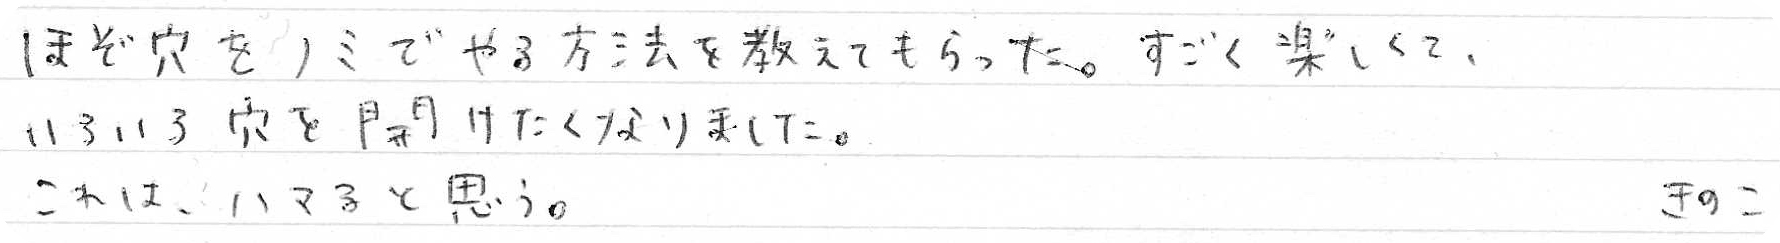 ほぞ穴をノミでやる方法を教えてもらった。すごく楽しくて、
いろいろ穴を開けたくなりました。
これは、ハマると思う。 きのこ